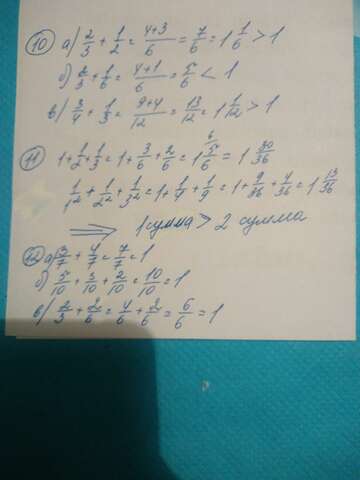 10 а) 2/3 + 1/2 = (4+3)/6 = 7/6 = 1 1/6 > 1
б) 2/3 + 1/6 = (4+1)/6 = 5/6 < 1
в) 3/4 + 1/3 = (9+4)/12 = 13/12 = 1 1/12 > 1
11 1 + 1/2 + 1/3 = 1 + 3/6 + 2/6 = 1 5/6 = 1 30/36
1/1² + 1/2² + 1/3² = 1 + 1/4 + 1/9 = 1 + 9/36 + 4/36 = 1 13/36
⇒ 1 сумма > 2 сумма
12 а) 3/7 + 4/7 = 7/7 = 1
б) 5/10 + 3/10 + 2/10 = 10/10 = 1
в) 2/3 + 2/6 = 4/6 + 2/6 = 6/6 = 1